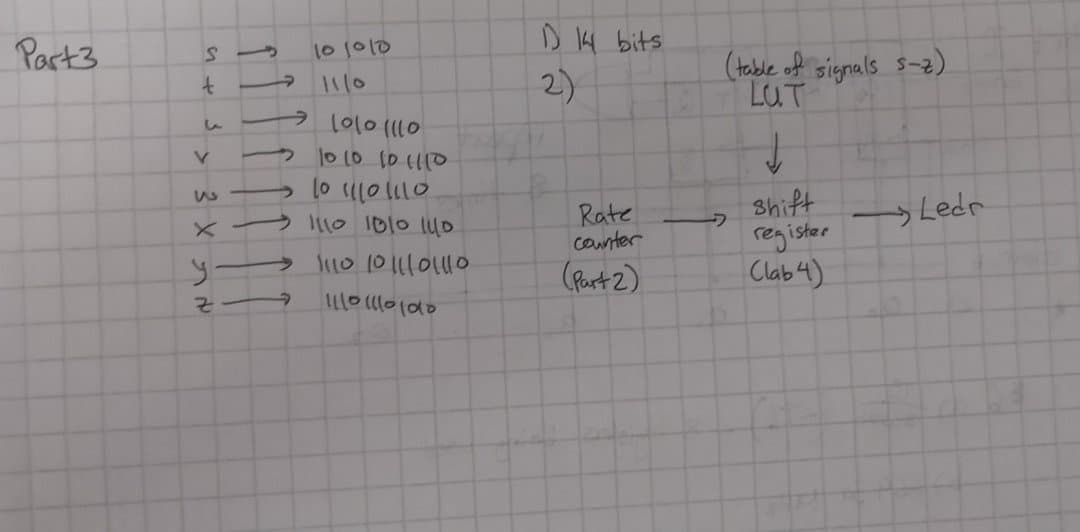 Part3
s → 101010
t → 1110
u → 10101110
v → 1010 101110
w → 10 1110 1110
x → 1110 1010 1110
y → 1110 1011101110
z → 111011101010
1) 14 bits
2)
(table of signals s-z)
LUT
↓
Rate counter (Part2) → shift register (lab 4) → Ledr